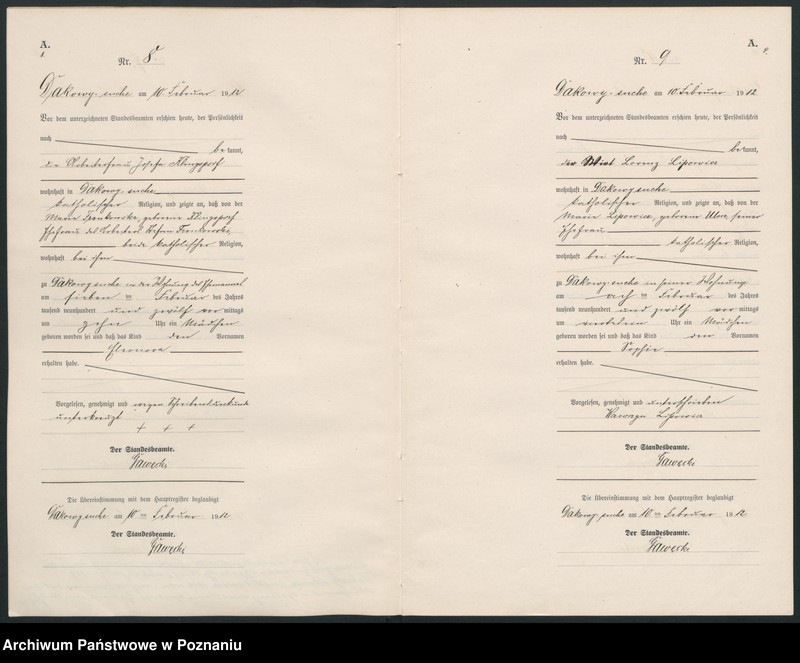 A.
8.
Nr. 8.
Dakowy-suche am 10. Februar 1912
Vor dem unterzeichneten Standesbeamten erschien heute, der Persönlichkeit
nach
bekannt,
die Arbeiterfrau Josefa Klingsporf
wohnhaft in Dakowy-suche
katholischer Religion, und zeigte an, daß von der
Maria geborene Klingsporf
Ehefrau des Arbeiters
beide katholischer Religion,
wohnhaft bei ihm
zu Dakowy suche in der Wohnung des Ehemannes
am sieben ten Februar des Jahres
tausend neunhundert und zwölf vor mittags
um zehn Uhr ein Mädchen
geboren worden sei und daß das Kind den Vornamen
Eleonora
erhalten habe.
Vorgelesen, genehmigt und wegen Schreibensunkunde
unterkreuzt
+ + +
Der Standesbeamte.
Gawecki
Die Übereinstimmung mit dem Hauptregister beglaubigt
Dakowy suche am 10 ten Februar 1912
Der Standesbeamte.
Gawecki
A.
9.
Nr. 9
Dakowy-suche am 10. Februar 1912
Vor dem unterzeichneten Standesbeamten erschien heute, der Persönlichkeit
nach
bekannt,
der Wirt Lorenz Lipowicz
wohnhaft in Dakowy suche
katholischer Religion, und zeigte an, daß von der
Maria Lipowicz, geborene seiner
Ehefrau
katholischer Religion,
wohnhaft bei ihm
zu Dakowy suche in seiner Wohnung
am acht ten Februar des Jahres
tausend neunhundert und zwölf vor mittags
um Uhr ein Mädchen
geboren worden sei und daß das Kind den Vornamen
Sophie
erhalten habe.
Vorgelesen, genehmigt und unterschrieben
Wawrzyn Lipowicz
Der Standesbeamte.
Gawecki
Die Übereinstimmung mit dem Hauptregister beglaubigt
Dakowy suche am 10 ten Februar 1912
Der Standesbeamte.
Gawecki
Archiwum Państwowe w Poznaniu